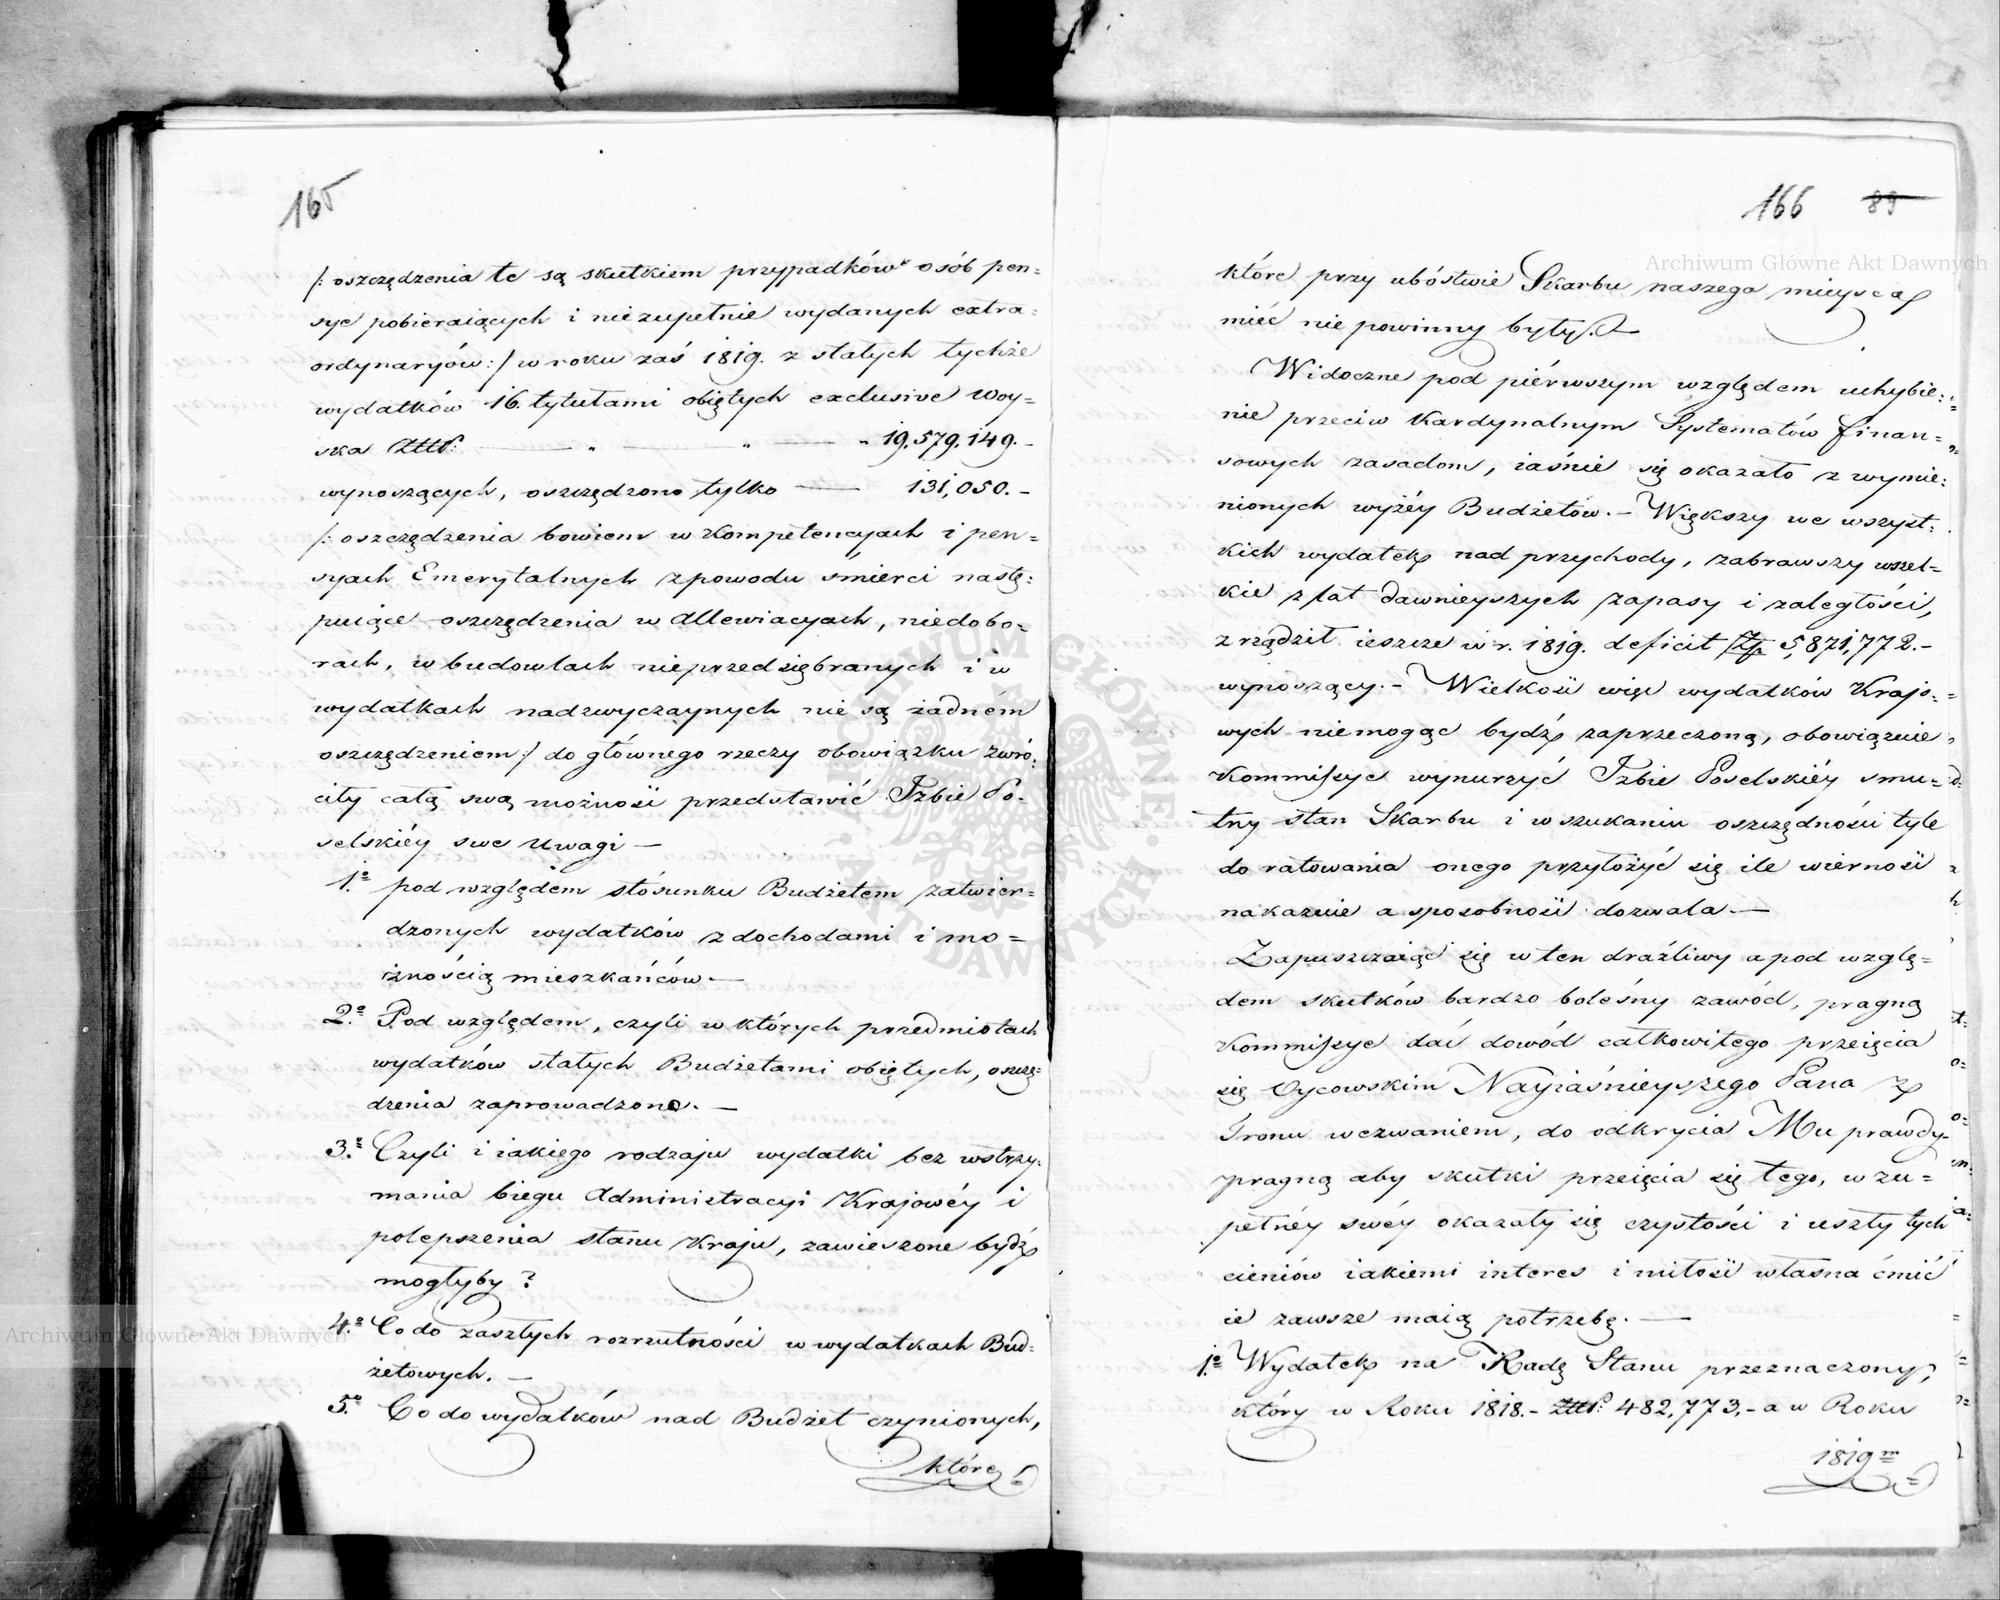 165
/: oszczędzenia te są skutkiem przypadków osób pen=
syę pobieraiących i niezupełnie wydanych extra=
ordynaryów :/ w roku zaś 1819. z stałych tychże
wydatków 16. tytułami obiętych exclusive Woy=
ska Złł. — " — " — " 19,579,149. -
wynoszących, oszczędzono tylko — 131,050. -
/: oszczędzenia bowiem w kompetencyach i pen=
syach Emerytalnych z powodu śmierci nastę=
puiące oszczędzenia w Allewiacyach, niedobo=
rach, w budowlach nieprzedsiębranych i w
wydatkach nadzwyczaynych nie są żadném
oszczędzeniem :/ do głównego rzeczy obowiązku zwró=
ciły całą swą możność przedstawić Izbie Po=
selskiéy swe Uwagi —
1.º pod względem stósunku Budżetem zatwier=
dzonych wydatków z dochodami i mo=
żnością mieszkańców. —
2.º Pod względem, czyli w których przedmiotach
wydatków stałych Budżetami obiętych, oszczę=
dzenia zaprowadzono. —
3.º Czyli i iakiego rodzaju wydatki bez wstrzy=
mania biegu Administracyi Krajowéy i
polepszenia stanu Kraju, zawieszone bydź
mogłyby?
4.º Co do zaszłych rozrzutności w wydatkach Bud=
żetowych. —
5.º Co do wydatków nad Budżet czynionych,
które
166 89
które przy ubóstwie Skarbu naszego mieysca
mieć nie powinny były. —
Widoczne pod piérwszym względem uchybie=
nie przeciw Kardynalnym Systematów finan=
sowych zasadom, iaśnie się okazało z wymie=
nionych wyżéy Budżetów. — Większy we wszyst=
kich wydatek nad przychody, zabrawszy wszel=
kie z lat dawnieyszych zapasy i zaległości,
zrządził ieszcze w r. 1819. deficit Złp 5,871,772. -
wynoszący. — Wielkość więc wydatków Krajo=
wych niemogąc bydź zaprzeczoną, obowiązuie
Kommissye wynurzyć Izbie Poselskiéy smu=
tny stan Skarbu i w szukaniu oszczędności tyle
do ratowania onego przyłożyć się ile wierność
nakazuie a sposobność dozwala. —
Zapuszczaiąc się w ten draźliwy a pod wzglę=
dem skutków bardzo boleśny zawód, pragną
Kommissye dać dowód całkowitego przeięcia
się Oycowskim Nayiaśnieyszego Pana z
Tronu wezwaniem, do odkrycia Mu prawdy
pragną aby skutki przeięcia się tego, w zu=
pełnéy swéy okazały się czystości i uszły tych
cieniów iakiemi interes i miłość własna ćmić
ie zawsze maią potrzebę. —
1.º Wydatek na Radę Stanu przeznaczony,
który w Roku 1818. - Złł. 482,773, - a w Roku
1819m
Archiwum Główne Akt Dawnych
Archiwum Główne Akt Dawnych
ARCHIWUM GŁÓWNE AKT DAWNYCH